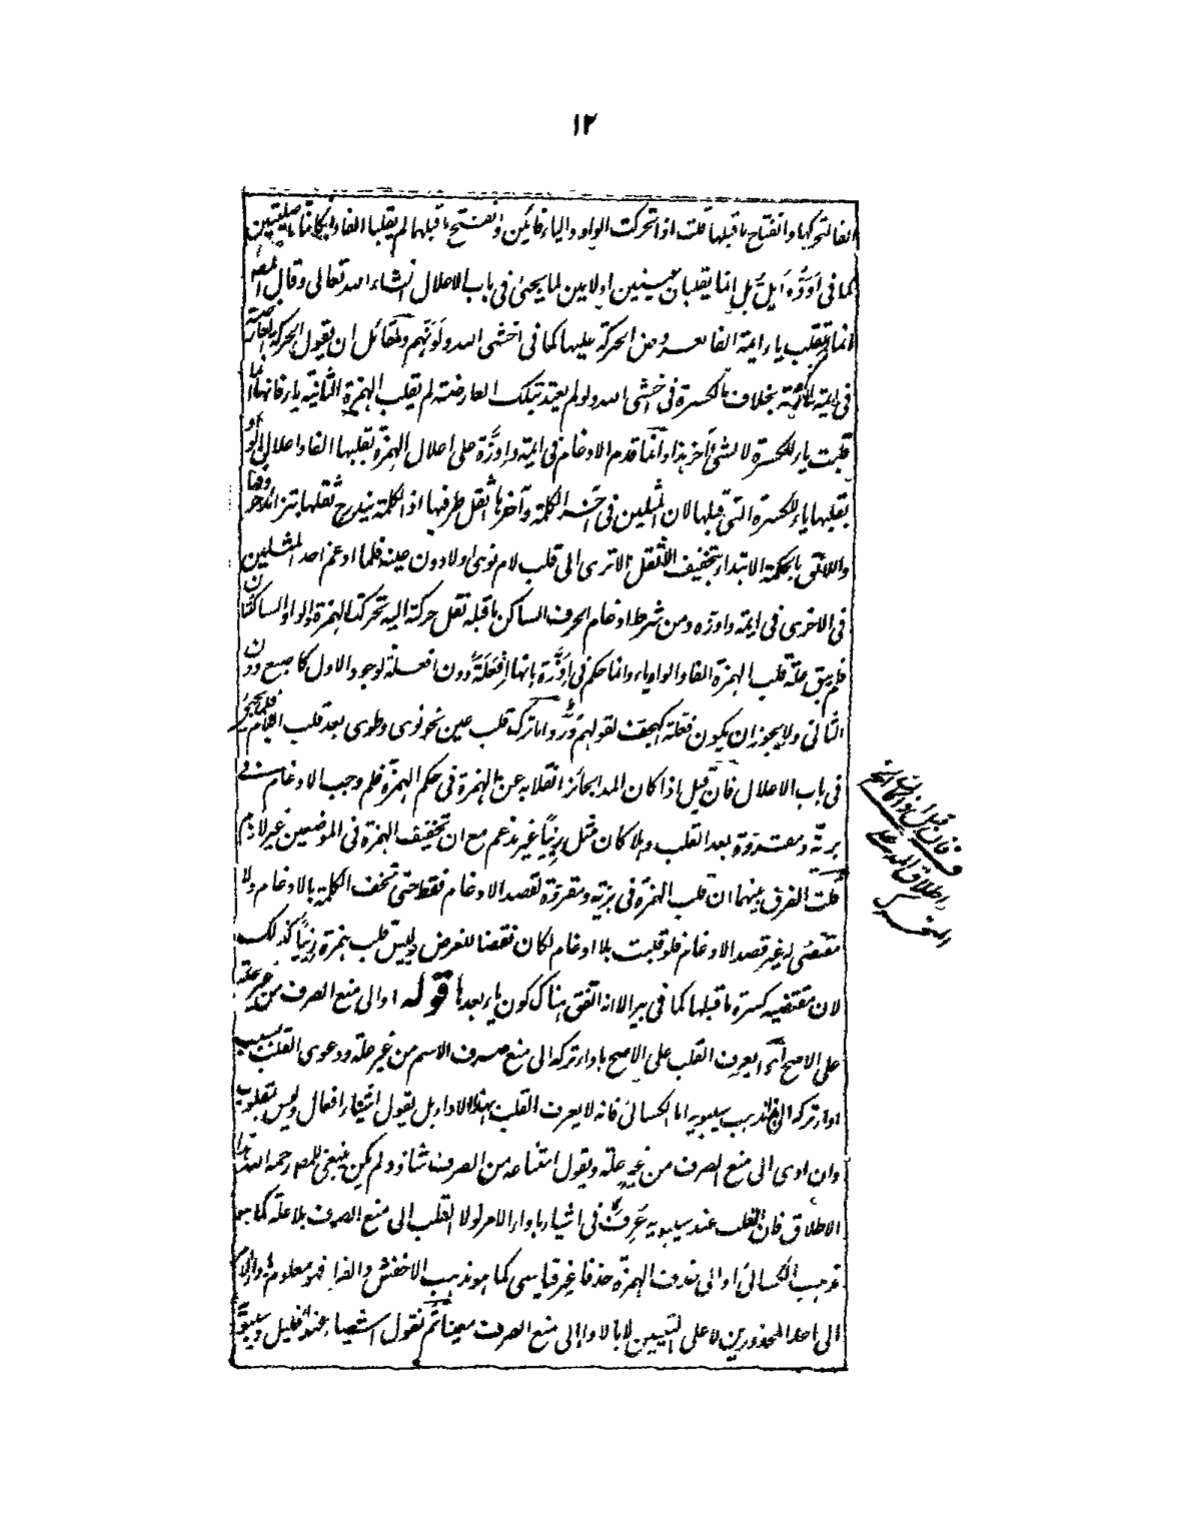 ١٢
الفا لتحركها وانفتاح ما قبلها قلت اذا تحركت الواو والياء فائين وانفتح ما قبلهما لم يقلبا الفا وان كانتا اصليتين
كما فى اَوَدُّ و اَيَلُّ بل انما يقلبان عينين او لامين لما يجىء فى باب الاعلال انشاء الله تعالى وقال المصـ
انما لم يقلب ياء ايمة الفا لعروض الحركة عليها كما فى اخشى الله ولو انهم ولقائل ان يقول الحركة العارضة
فى ايمة لازمة بخلاف الكسرة فى اخشى الله ولو لم يعتد بتلك العارضة لم يقلب الهمزة الثانية ياء فانها انما
قلبت ياء للكسرة لا لشىء آخر هذا وانما قدم الادغام فى ايمة واوزّة على اعلال الهمزة بقلبها الفا واعلال الواو
بقلبها ياء للكسرة التى قبلها لان المثلين فى آخر الكلمة وآخرها اثقل طرفيها اذ الكلمة يتدرج ثقلها بتزايد حروفها
واللائق بالحكمة الابتداء بتخفيف الاثقل الا ترى الى قلب لام نوى اولا دون عينه فلما ادغم احد المثلين
فى الاخرى فى ايمة واوزه ومن شرط ادغام الحرف الساكن ما قبله نقل حركته اليه تحركت الهمزة والواو الساكنتان
فلم يبق علة قلب الهمزة الفا والواو ياء وانما حكم فى اِوَزَّة بانها اِفْعَلَة دون افعلّة لوجود الاول كاصبع دون
الثانى ولا يجوز ان يكون فعلّة كهجف لقولهم وَزٌّ واما ترك قلب عين نحو نوى وطوى بعد قلب اللام فلما يجىء
فى باب الاعلال فان قيل اذا كان المد الجائز انقلابه عن الهمزة فى حكم الهمزة فلم وجب الادغام فى
بريّة ومقروّة بعد القلب وهلا كان مثل رِيْيًا غير مدغم مع ان تخفيف الهمزة فى الموضعين غير لازم
قلت الفرق بينهما ان قلب الهمزة فى بريّة ومقروّة لقصد الادغام فقط حتى تخف الكلمة بالادغام ولا
مقتضى له غير قصد الادغام فلو قلبت بلا ادغام لكان نقضا للغرض وليس قلب همزة رِيْيًا كذلك
لان مقتضيه كسرة ما قبلها كما فى بير الا انه اتفق هناك كون ياء بعدها قوله او الى منع الصرف من غير علة
على الاصح اى يعرف القلب على الاصح باداء تركه الى منع صرف الاسم من غير علة ودعوى القلب بسبب
اداء تركه الى هذا مذهب سيبويه اما الكسائى فانه لا يعرف القلب بهذا الاداء بل يقول اشياء افعال وليس بمقلوب
وان ادى الى منع الصرف من غير علة ويقول امتناعه من الصرف شاذ ولم يكن ينبغى للمص رحمه الله هذا
الاطلاق فان القلب عند سيبويه عُرِفَ فى اشياء باداء الامر لولا القلب الى منع الصرف بلا علة كما هو
مذهب الكسائى او الى حذف الهمزة حذفا غير قياسى كما هو مذهب الاخفش والفراء فهو معلوم باداء الامر
الى احد المحذورين لا على التعيين لا بالاداء الى منع الصرف معينا ثم نقول اشياء عند الخليل وسيبويه